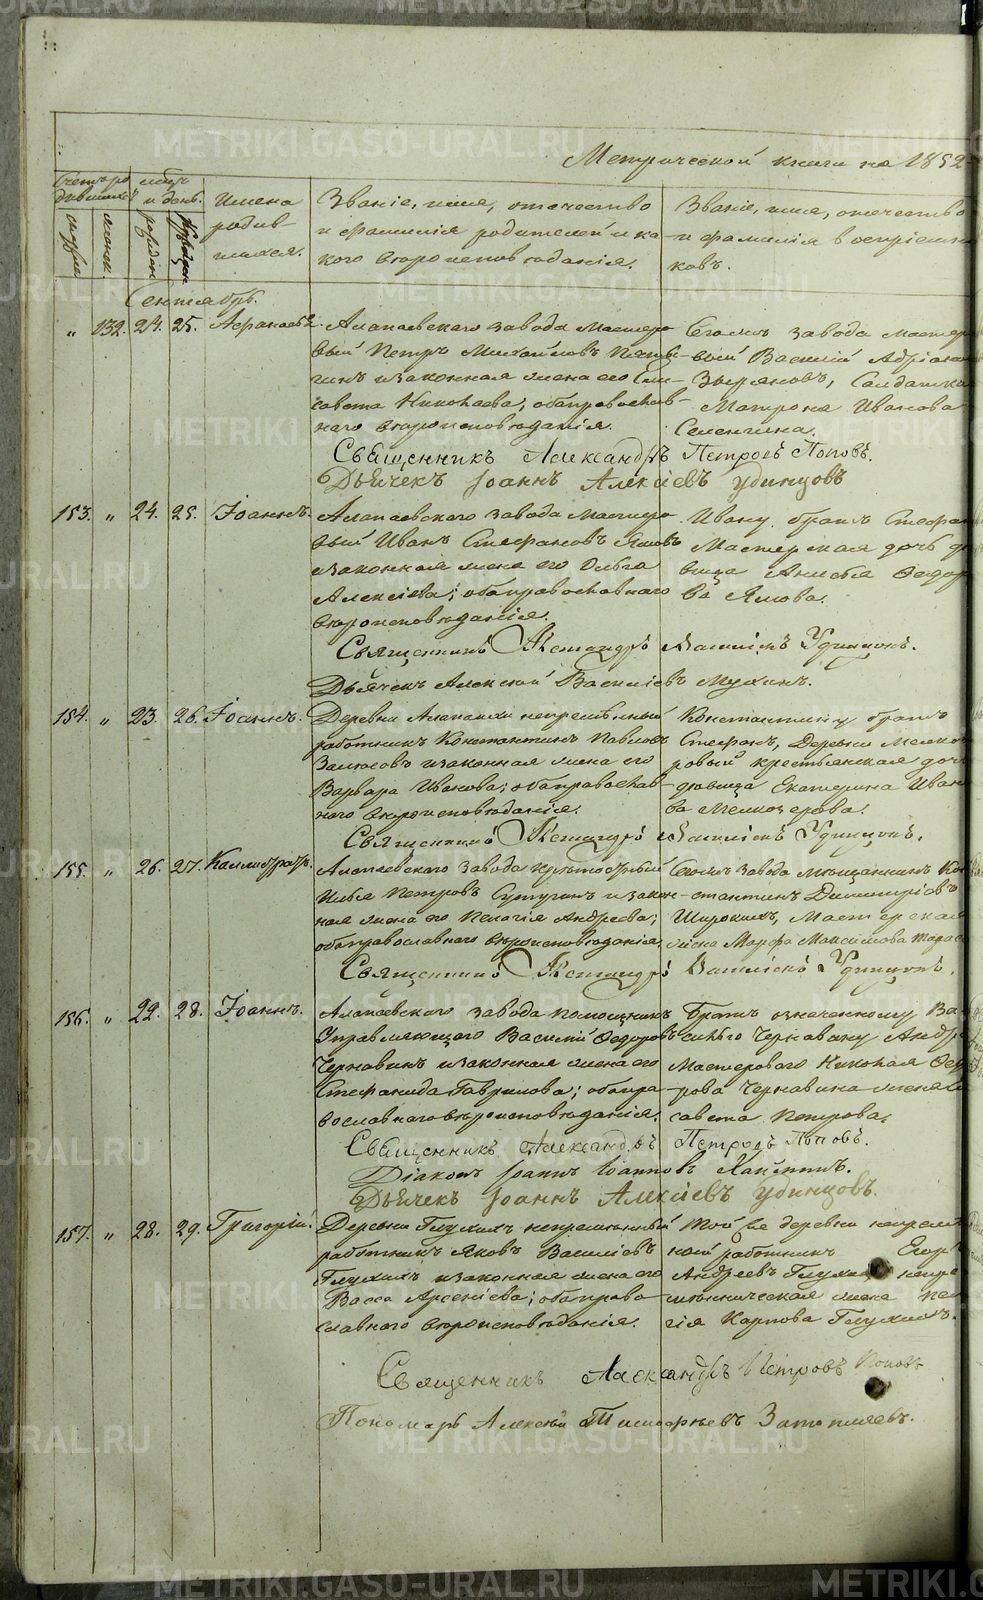 Метрической книги на 1852
Счетъ ро
дившихъ
мѣсц
и день.
Имена
родив
шихся.
Званіе, имя, отечество
и фамилія родителей и ка
кого вѣроисповѣданія.
Званіе, имя, отечество
и фамилія воспріемн
ковъ.
мужеск
женск.
рожден
крещен
Сентябрь.
" 132. 24. 25.
Алапаевскаго завода Мастеро
вый Петръ Михайловъ
и законная жена его Ели
савета Николаева, оба православ
наго вѣроисповѣданія.
завода мастер
вый Василій Адріано
Зыряновъ, Солдатка
Матрона Иванова
Селенгина.
Священникъ Александръ Петровъ Поповъ.
Дьячекъ Іоаннъ Алексіевъ Удинцовъ
153. " 24. 25. Іоаннъ.
Алапаевскаго завода Мастеро
вый Иванъ Стефановъ Ямовъ
и законная жена его Ольга
Алексіева; оба православнаго
вѣроисповѣданія.
Ивану братъ Стефан
Мастерская дочь дѣ
вица Анисья Федор
ва Ямова.
Священникъ Александръ Василіевъ Удинцовъ.
Дьячекъ Алексѣй Василіевъ Мухинъ.
154. " 23. 26. Іоаннъ.
Деревни Алапаихи непремѣнный
работникъ Константинъ Павловъ
и законная жена его
Варвара Иванова; оба православ
наго вѣроисповѣданія.
Константину братъ
Стефанъ, Деревни Мелкоз
ровый крестьянская доч
дѣвица Екатерина Иван
ва Мелкозерова.
Священникъ Александръ Василіевъ Удинцовъ.
155. " 26. 27. Каллистратъ.
Алапаевскаго завода
Илья Петровъ Сутугинъ и закон
ная жена его Пелагія Андреева;
оба православнаго вѣроисповѣданія.
завода Мѣщанинъ Ко
стантинъ Димитріевъ
Широкихъ, Мастерская
жена Марфа Максимова Тарас
Священникъ Александръ Василіевъ Удинцовъ.
156. " 22. 28. Іоаннъ.
Алапаевскаго завода помощникъ
Управляющаго Василій Федоровъ
Чернавинъ и законная жена его
Стефанида Гаврилова; оба пра
вославнаго вѣроисповѣданія.
Братъ означенному Ва
силью Чернавину Андр
Мастероваго Николая Фед
рова Чернавина жена Ели
савета Петрова.
Священникъ Александръ Петровъ Поповъ.
Діаконъ Іоаннъ Іоанновъ
Дьячекъ Іоаннъ Алексіевъ Удинцовъ.
157. " 28. 29. Григорій.
Деревни Глухихъ непремѣнный
работникъ Яковъ Василіевъ
Глухихъ и законная жена его
Васса Арсеніева; оба право
славнаго вѣроисповѣданія.
Той же деревни непремѣ
ной работникъ Егоръ
Андреевъ Глухихъ непре
мѣнническая жена Пела
гія Карпова Глухихъ.
Священникъ Александръ Петровъ Поповъ
Пономарь Алексѣй Тимофѣевъ Затопляевъ.
METRIKI.GASO-URAL.RU